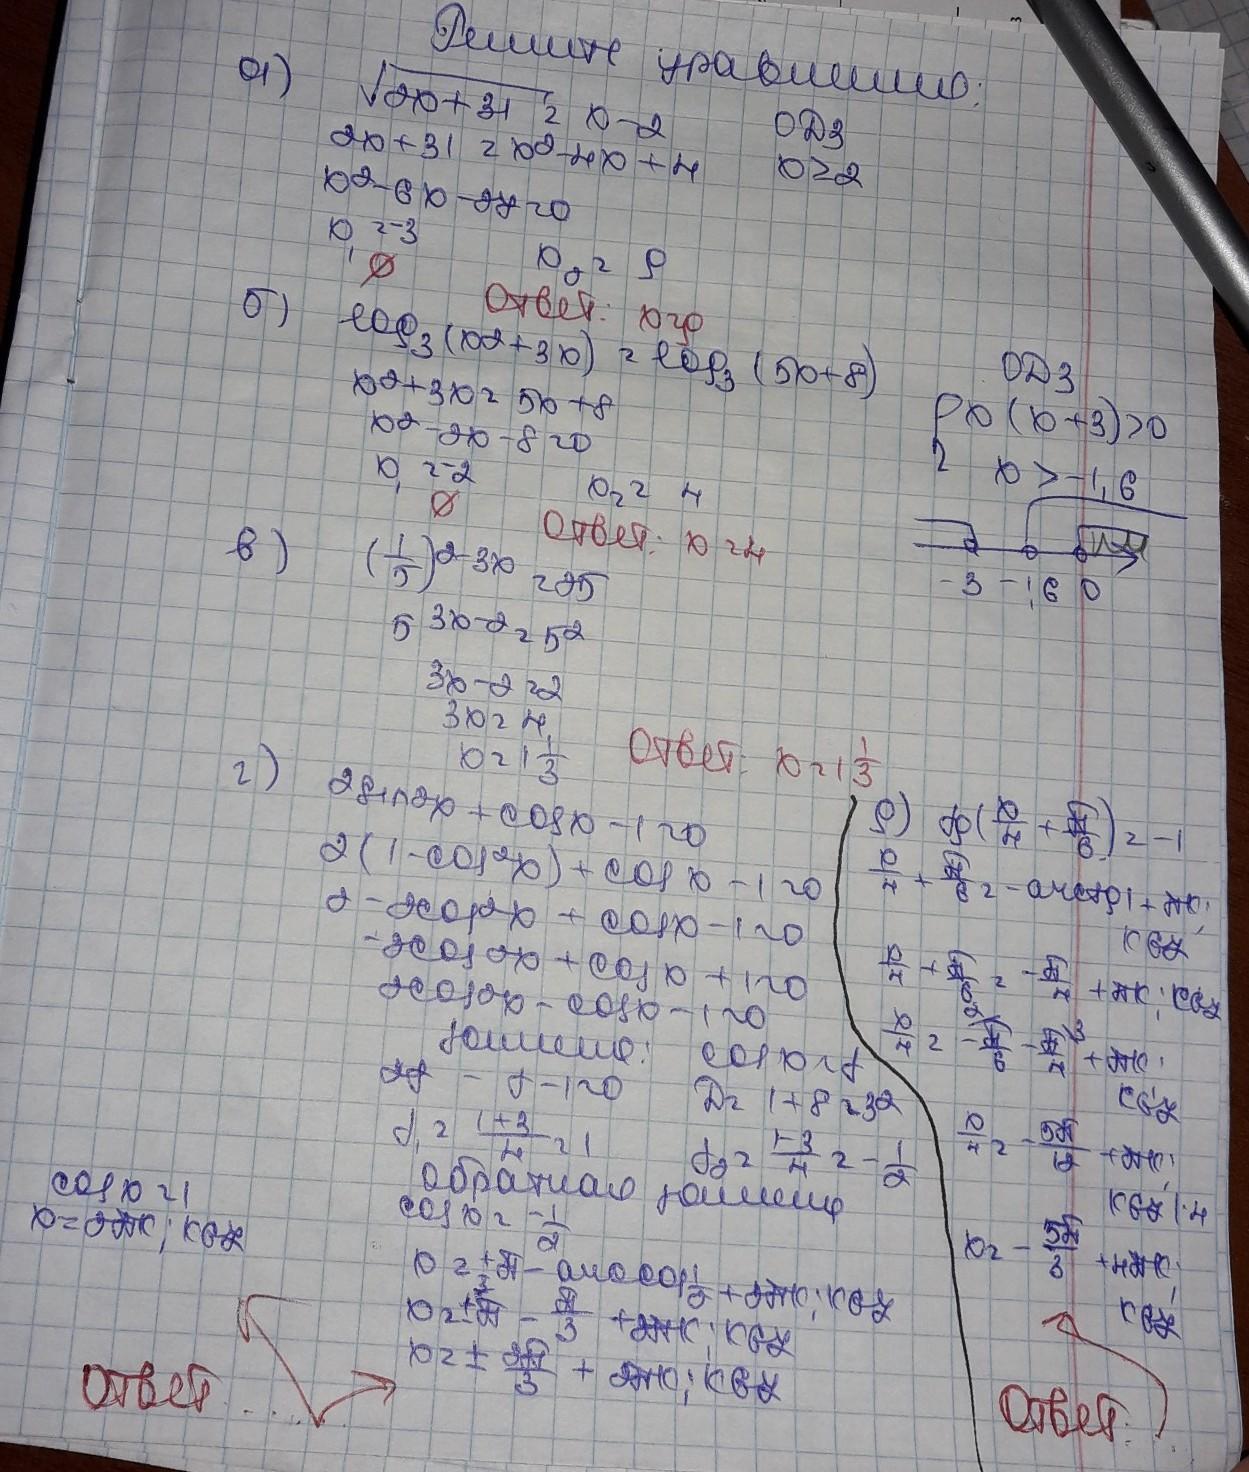 Решите уравнения:
а) √(2x+31) = x-2 ОДЗ
2x+31 = x²-4x+4 x≥2
x²-6x-27=0
x₁=-3
∅ x₂= 9
Ответ: x=9
б) log₃(x²+3x) = log₃(5x+8) ОДЗ
x²+3x = 5x+8 { x(x+3)>0
x²-2x-8=0 x>-1,6
x₁=-2 x₂= 4
∅ Ответ: x=4
-3 -1,6 0
в) (1/5)^(2-3x) =25
5^(3x-2) = 5²
3x-2=2
3x=4
x=1 1/3 Ответ: x=1 1/3
г) 2sin²x+cosx-1=0
2(1-cos²x)+cosx-1=0
2-2cos²x+cosx-1=0
-2cos²x+cosx+1=0
2cos²x-cosx-1=0
замена: cosx=y
2y²-y-1=0 D=1+8=3²
y₁= (1+3)/4 =1 y₂= (1-3)/4 = -1/2
Обратная замена
cosx=1
x=2πк; к∈Z
cosx= -1/2
x=±π-arccos 1/2 +2πк; к∈Z
x=±π - π/3 +2πк; к∈Z
x=± 2π/3 + 2πк; к∈Z
Ответ.....
g) tg(x/4 + π/6) = -1
x/4 + π/6 = -arctg1+πк;
к∈Z
x/4 + π/6 = - π/4 +πк; к∈Z
x/4 = - π/6 - π/4 +πк;
к∈Z
x/4 = - 5π/12 +πк;
к∈Z |·4
x= - 5π/3 +4πк;
к∈Z
Ответ:...